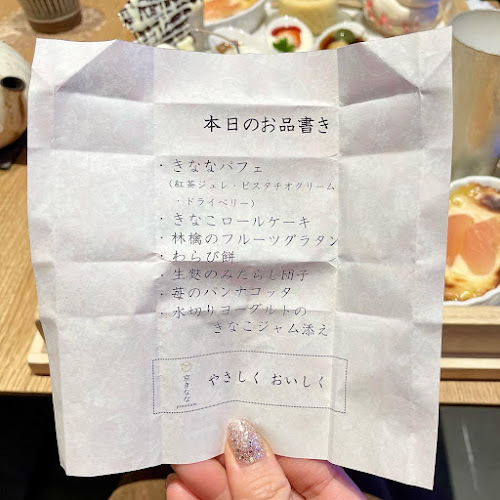 本日のお品書き
・きななパフェ
（紅茶ジュレ・ピスタチオグリーム
・ドライベリー）
・きなこロールケーキ
・林檎のフルーツグラタン
・わらび餅
・生麩のみたらし団子
・苺のパンナコッタ
・水切りヨーグルトの
きなこジャム添え
京きなな
やさしく おいしく